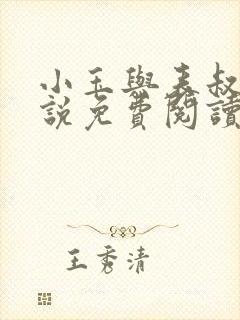 小玉與表叔
說免費閱讀
王秀清